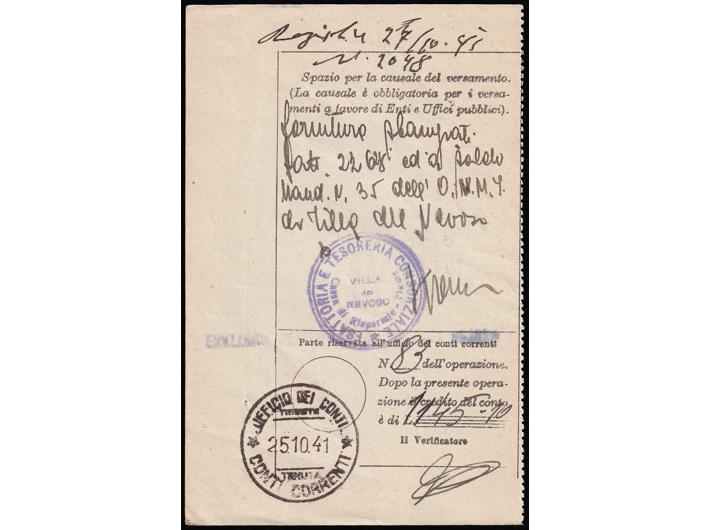 27/10.41
N. 2048
Spazio per la causale del versamento.
(La causale è obbligatoria per i versa-
menti a favore di Enti e Uffici pubblici).
fornitura stampati
fatt. 2268 ed a saldo
Mand. N. 35 dell' O.N.M.I.
di Villa del Nevoso
ESATTORIA E TESORERIA CONSORZIALE
Cassa di Risparmio - Fiume
VILLA
del
NEVOSO
Parte riservata all'ufficio dei conti correnti
N. 83 dell'operazione.
Dopo la presente opera-
zione il credito del conto
è di L.
Il Verificatore
UFFICIO DEI CONTI
TRIESTE
25.10.41
TENUTA
CONTI CORRENTI